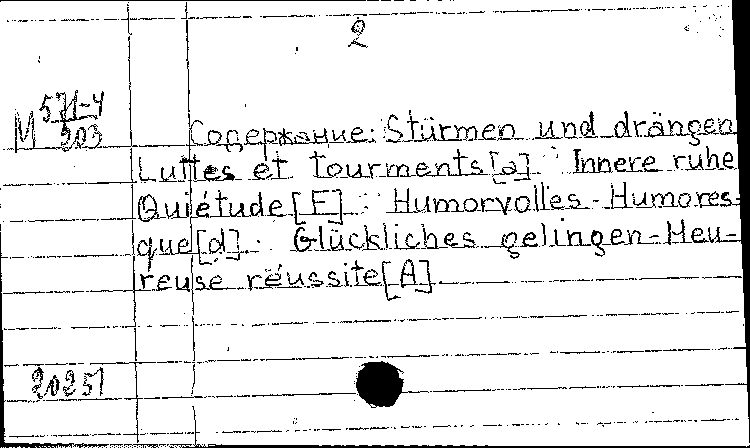 2
М 571-4
203
Содержание: Stürmen und drängen
Luttes et tourments [a]. Innere ruhe
Quiétude [F]. Humorvolles - Humores-
que [d]. Glückliches gelingen - Heu-
reuse réussite [A].
20251